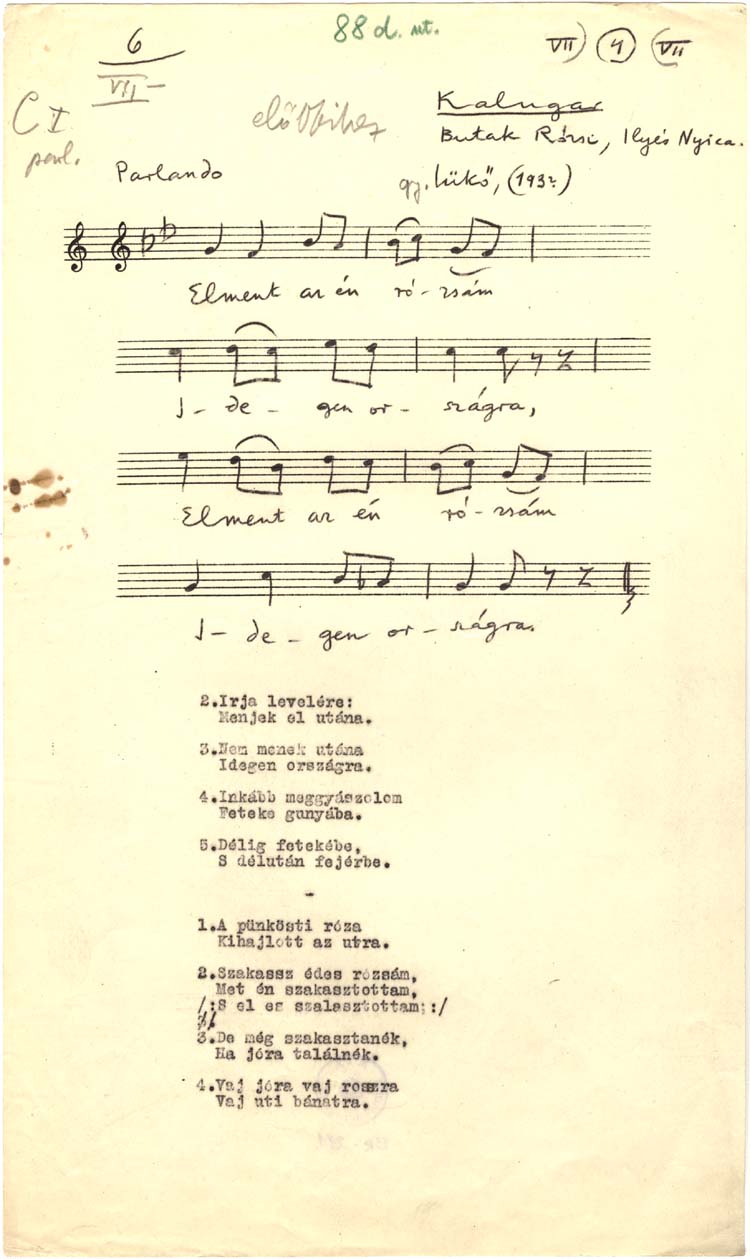 88 d. ut.
6
VII
VII) 4 (VII
C I
parl.
előbbihez
Kalugar
Butak Rózsi, Ilyés Nyica.
Parlando
gy. Lükő, (1932)
Elment az én ró-zsám
I- de - gen or - szágra,
Elment az én ró-zsám
I- de - gen or - szágra.
2.Irja levelére:
Menjek el utána.
3.Nem menek utána
Idegen országra.
4.Inkább meggyászolom
Feteke gunyába.
5.Délig fetekébe,
S délután fejérbe.
-
1.A pünkösti róza
Kihajlott az utra.
2.Szakassz édes rózsám,
Met én szakasztottam,
/:S el es szalasztottam;:/
3.De még szakasztanék,
Ha jóra találnék.
4.Vaj jóra vaj roszra
Vaj uti bánatra.